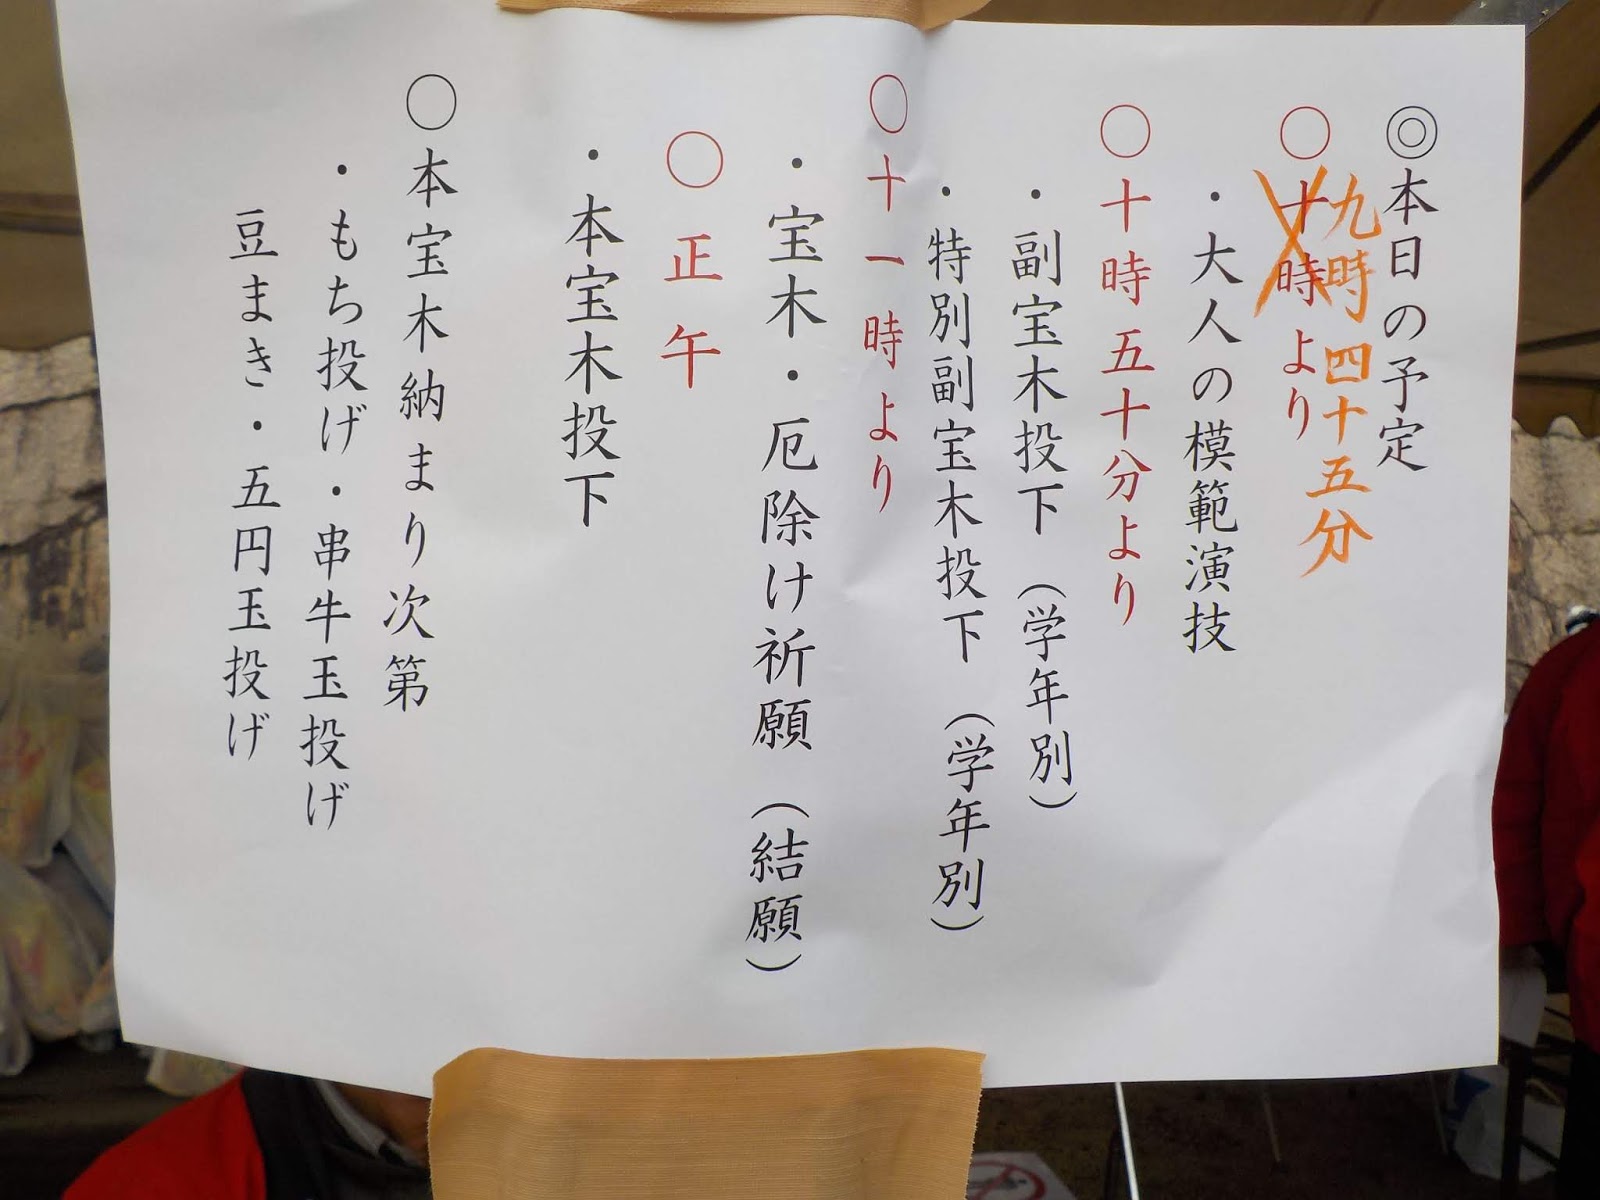 ◎本日の予定
九時四十五分
○十時より
・大人の模範演技
○十時五十分より
・副宝木投下（学年別）
・特別副宝木投下（学年別）
○十一時より
・宝木・厄除け祈願（結願）
○正午
・本宝木投下
○本宝木納まり次第
・もち投げ・串牛玉投げ
豆まき・五円玉投げ